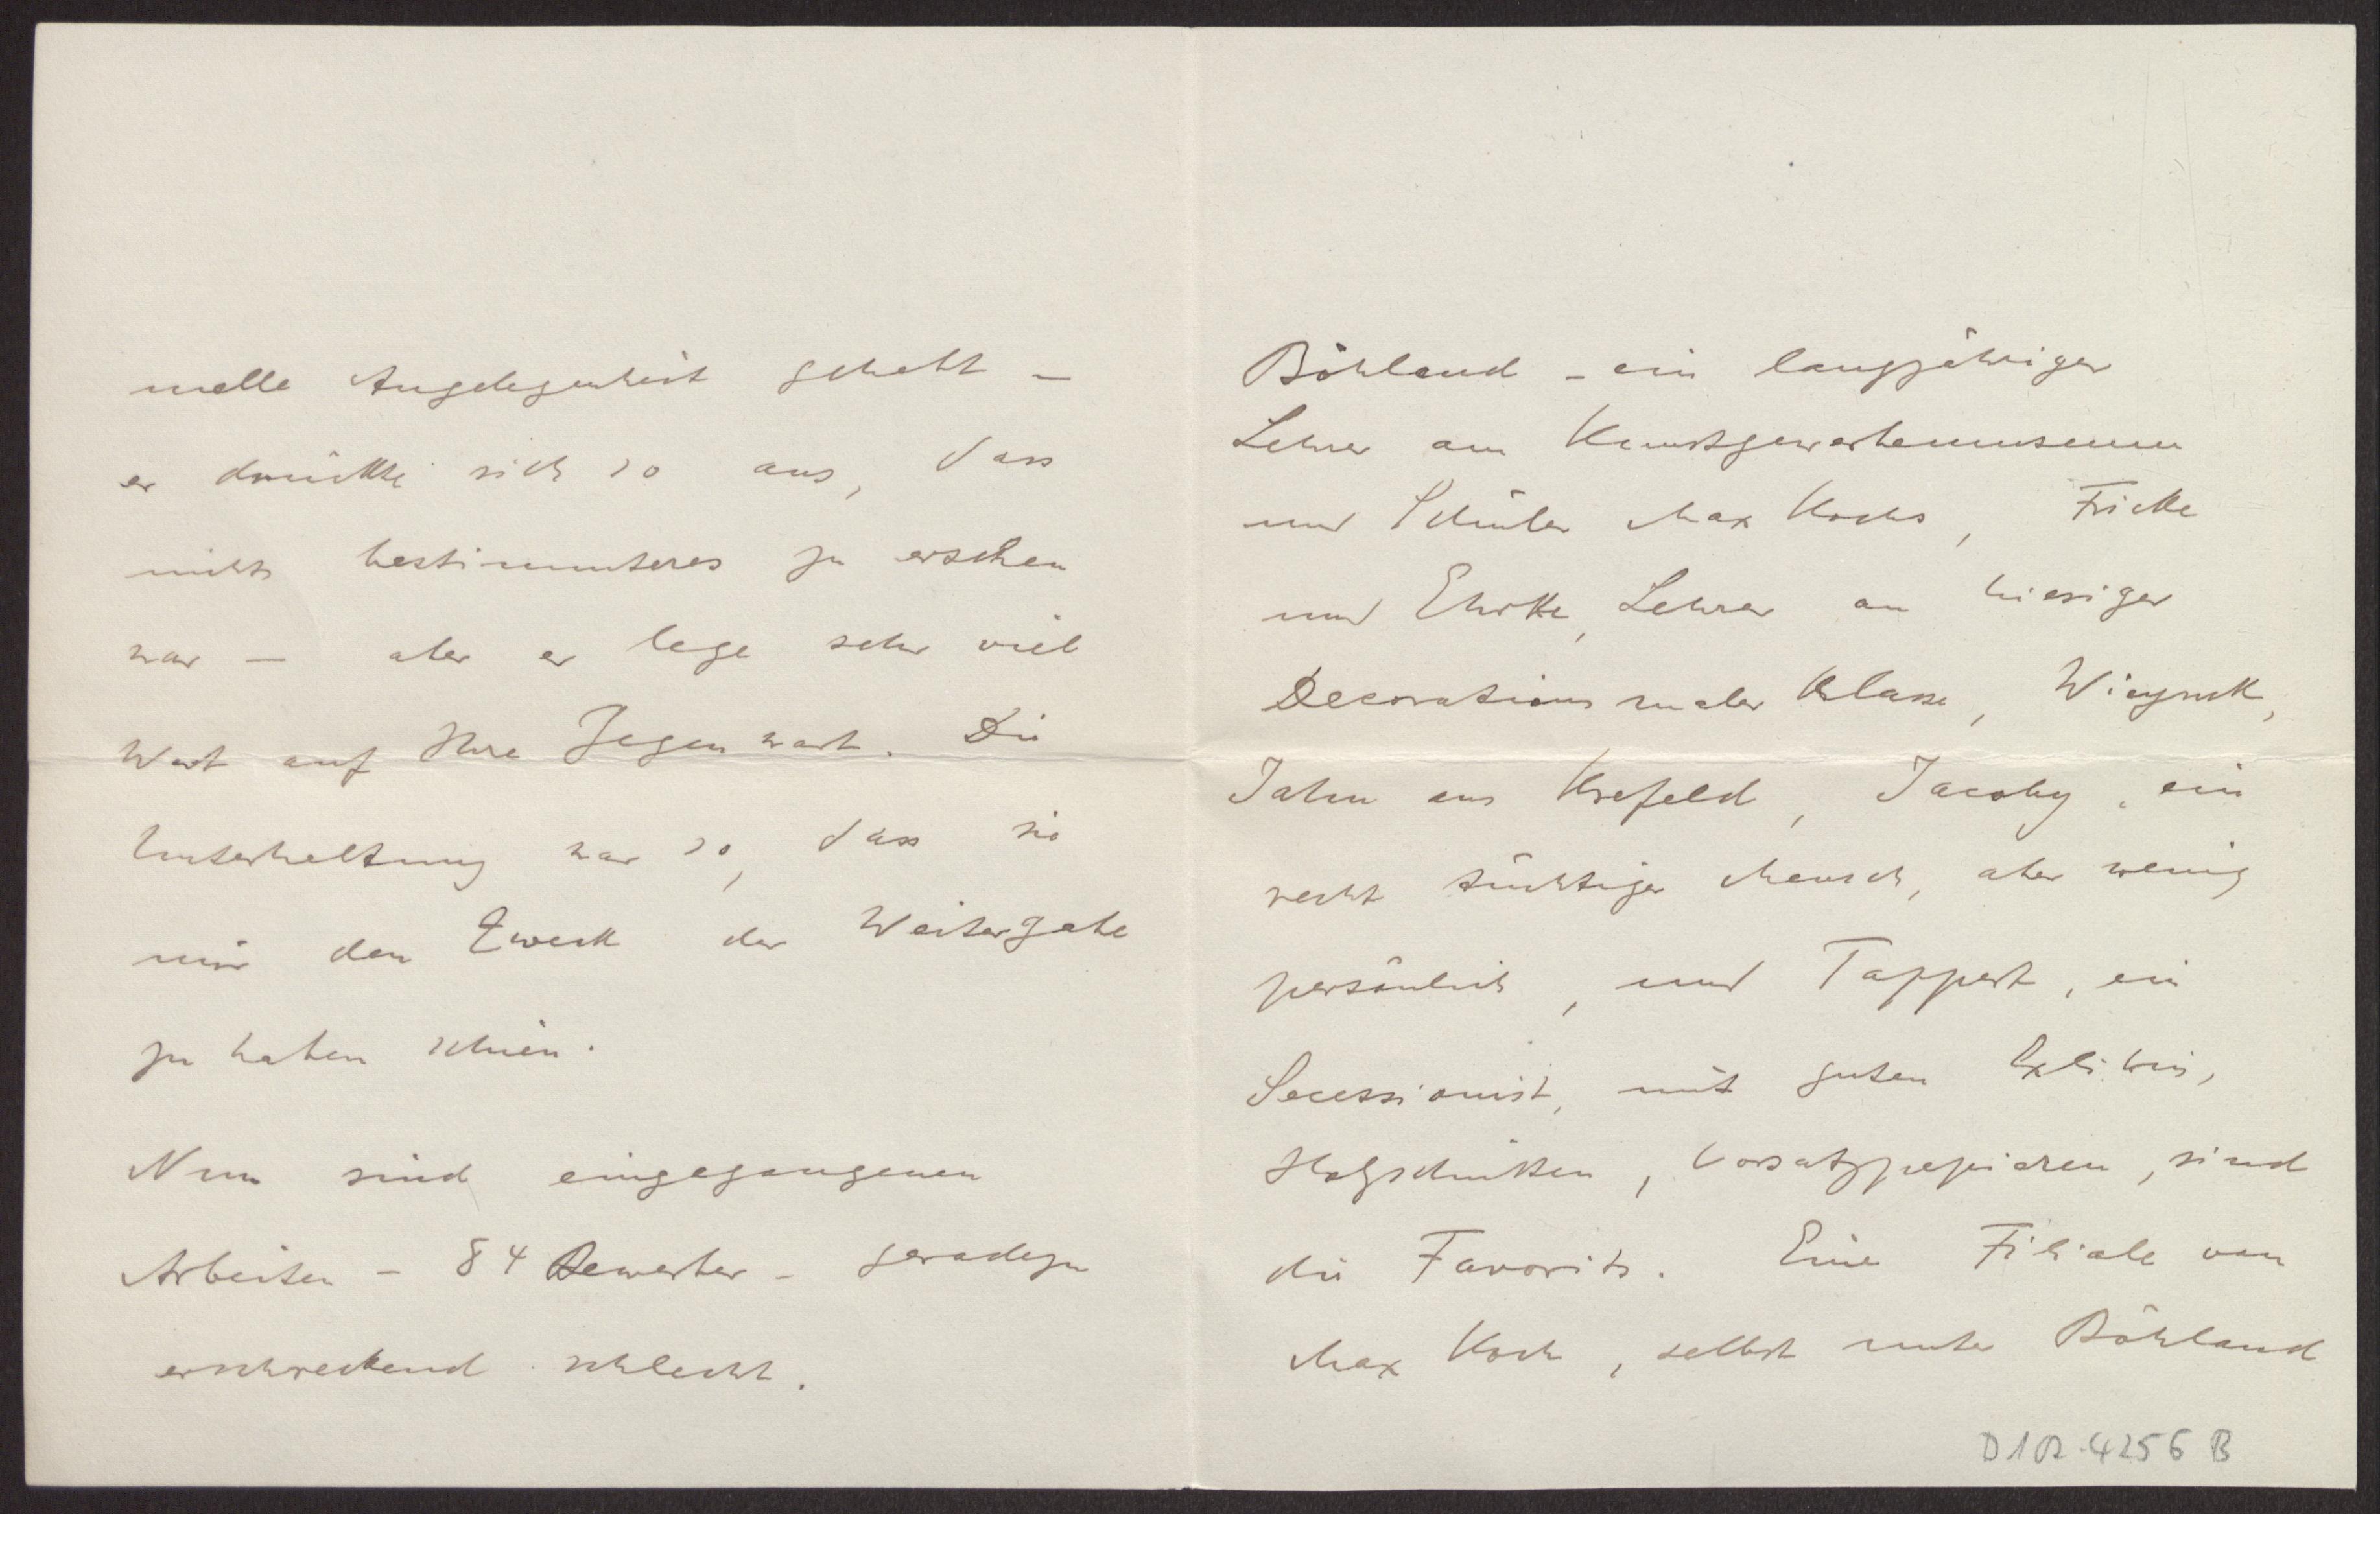 nelle Angelegenheit gehabt –
er drückte sich so aus, dass
nichts bestimmteres zu ersehen
war – aber er lege sehr viel
Wert auf Ihre Gegenwart. Die
Unterhaltung war so, dass sie
nur den Zweck der Weitergabe
zu haben schien.
Nun sind eingegangenen
Arbeiten – 84 Bewerber – geradezu
erschreckend schlecht.
Böhland – ein langjähriger
Lehrer am Kunstgewerbemuseum
und Schüler Max Kochs, Fricke
und Lehrer an hiesiger
Decorationsmaler Klasse, Wieynck,
Jahn aus Krefeld, Jacoby, ein
recht tüchtiger Mensch, aber wenig
persönlich, und Tappert, ein
Secessionist, mit guten Exlibris,
Holzschnitten, Vorsatzpapieren, sind
die Favorits. Eine Filiale von
Max Koch, selbst unter Böhland
D1R.4256 B